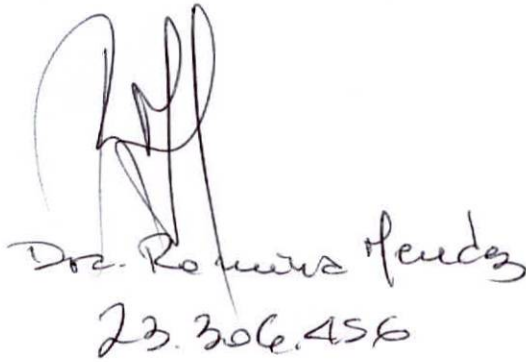 Dra. Romina Mendez
23.306.456